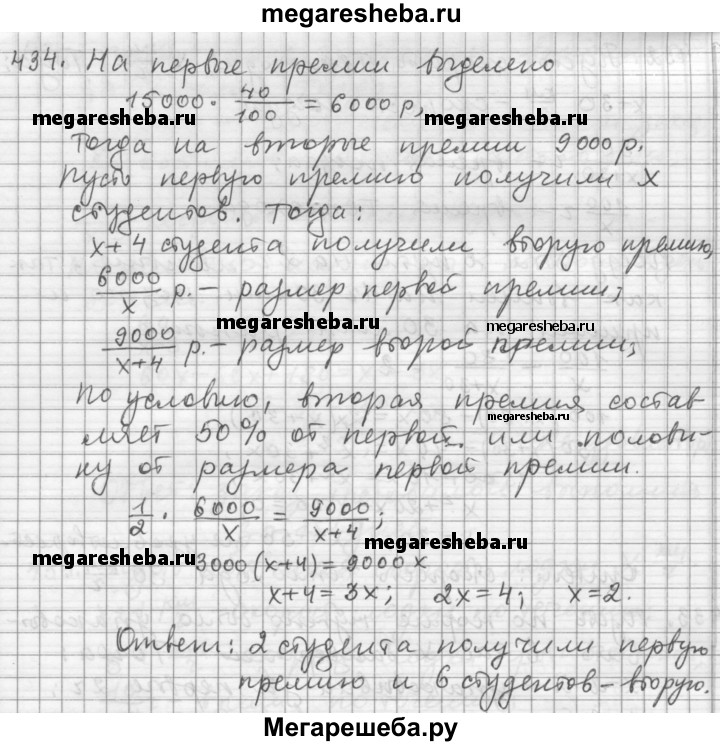 megaresheba.ru
434. На первые премии выделено
15000 · 40/100 = 6000 р,
megaresheba.ru megaresheba.ru
Тогда на вторые премии 9000 р.
Пусть первую премию получили x
студентов. Тогда:
x+4 студента получили вторую премию,
6000/x р. – размер первой премии;
megaresheba.ru megaresheba.ru
9000/x+4 р. – размер второй премии;
По условию, вторая премия состав-
megaresheba.ru
ляет 50% от первой или полови-
ну от размера первой премии.
1/2 · 6000/x = 9000/x+4;
megaresheba.ru megaresheba.ru
3000(x+4)=9000x
x+4=3x; 2x=4; x=2.
Ответ: 2 студента получили первую
премию и 6 студентов – вторую.
Мегарешеба.ру